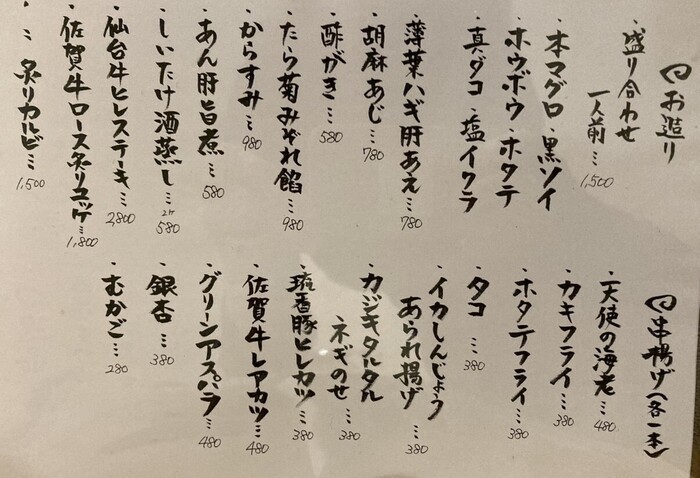 お造り
・盛り合わせ
一人前…1,500
・本マグロ・黒ソイ
・ホウボウ・ホタテ
・真ダコ・塩イクラ
・薄葉ハギ肝あえ…780
・胡麻あじ…780
・酢がき…580
・たら菊みぞれ餡…980
・からすみ…980
・あん肝旨煮…580
・しいたけ酒蒸し…2ケ580
・仙台牛ヒレステーキ…2,800
・佐賀牛ロース炙りユッケ…1,800
・〃 炙りカルビ…1,500
串揚げ(各一本)
・天使の海老…480
・カキフライ…380
・ホタテフライ…380
・タコ…380
・イカしんじょう
あられ揚げ…380
・カジキタルタル
ネギのせ…380
・琉香豚ヒレカツ…380
・佐賀牛レアカツ…480
・グリーンアスパラ…480
・銀杏…380
・むかご…280